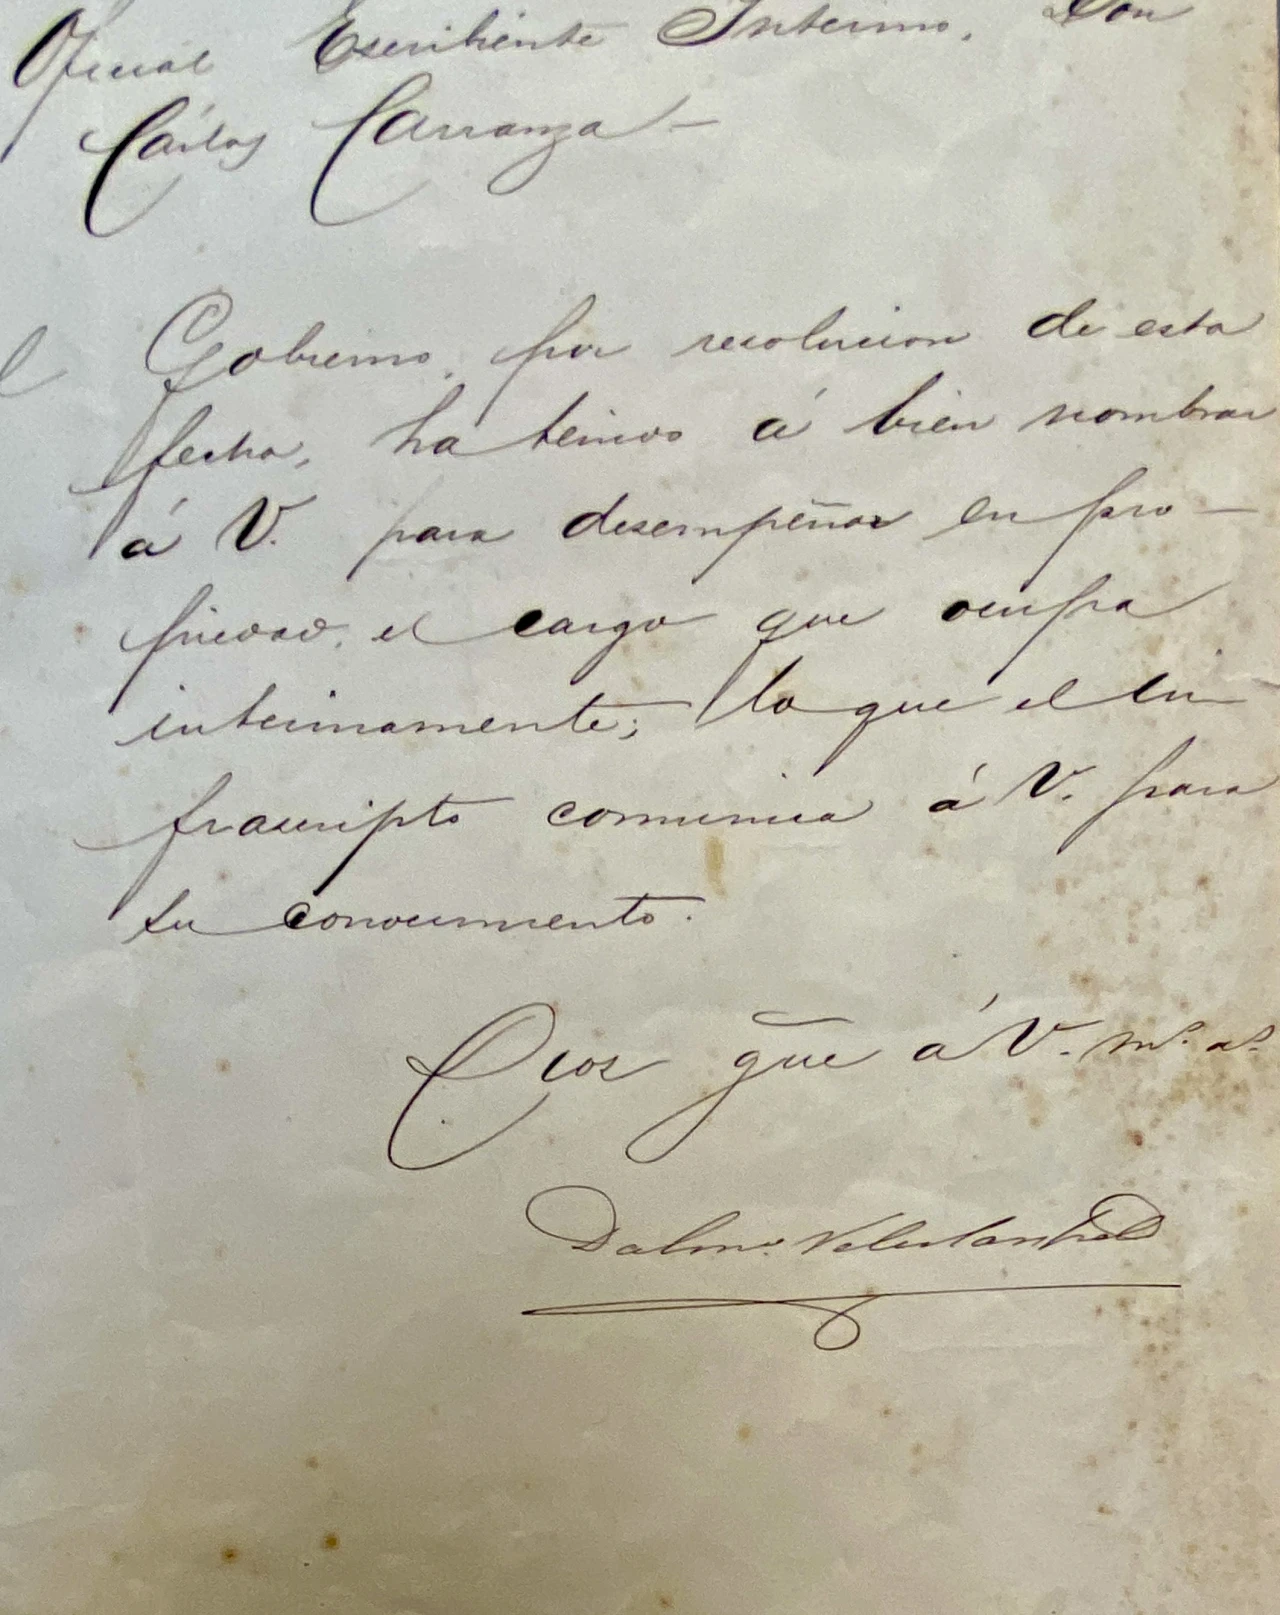 Oficial Escribiente Interino, Don
Cárlos Carranza —
El Gobierno, por resolucion de esta
fecha, ha tenido á bien nombrar
á V. para desempeñar en pro-
piedad, el cargo que ocupa
interinamente; lo que el in-
frascripto comunica á V. para
su conocimiento.
Dios gūe á V. ms. as.
Dalmo. Velez Sarsfield